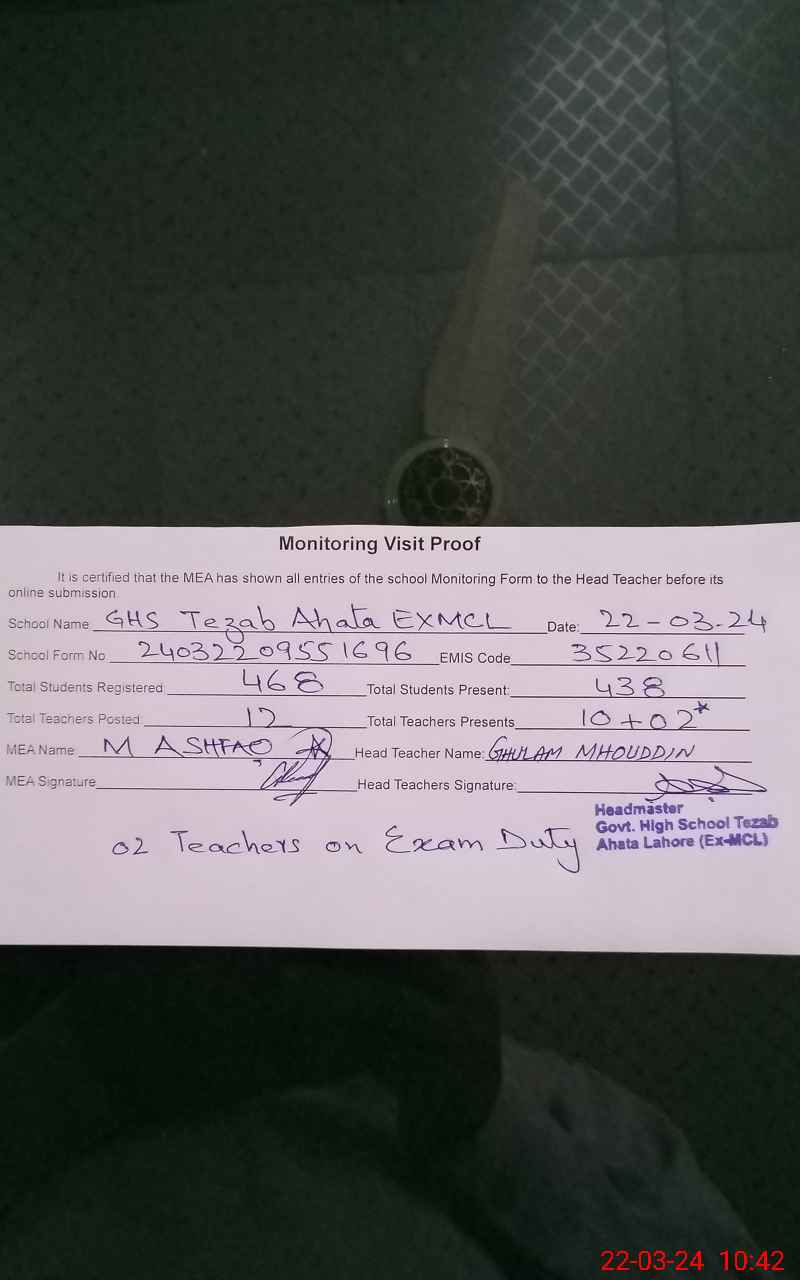 Monitoring Visit Proof
It is certified that the MEA has shown all entries of the school Monitoring Form to the Head Teacher before its
online submission.
School Name: GHS Tezab Ahata EXMCL Date: 22-03-24
School Form No 24032209551696 EMIS Code 35220611
Total Students Registered: 468 Total Students Present: 438
Total Teachers Posted: 12 Total Teachers Presents 10+02*
MEA Name: M ASHFAQ Head Teacher Name: GHULAM MHOUDDIN
MEA Signature Head Teachers Signature:
Headmaster
Govt. High School Tezab
Ahata Lahore (Ex-MCL)
02 Teachers on Exam Duty
22-03-24 10:42